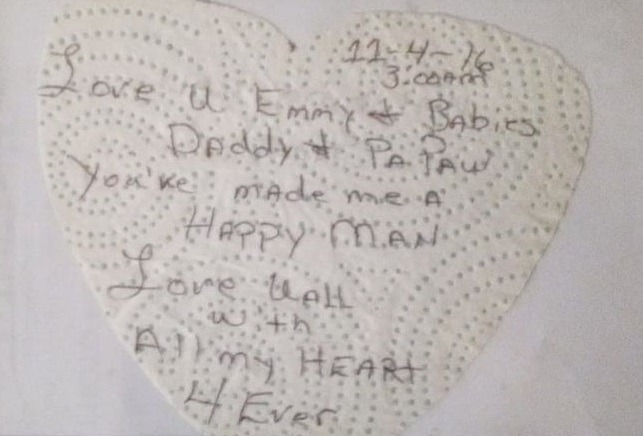 11-4-16
3:00AM
Love U Emmy & Babies
Daddy & PAPAW
You've made me A
HAPPY MAN
Love UAll
with
All my HEART
4 Ever